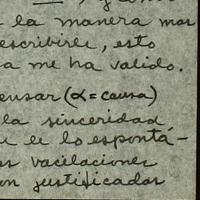 y como
e la manera mas
escribirle, esto
a me ha valido.
ensar (α = causa)
la sinceridad
e lo espontá-
as vacilaciones
on justificadas